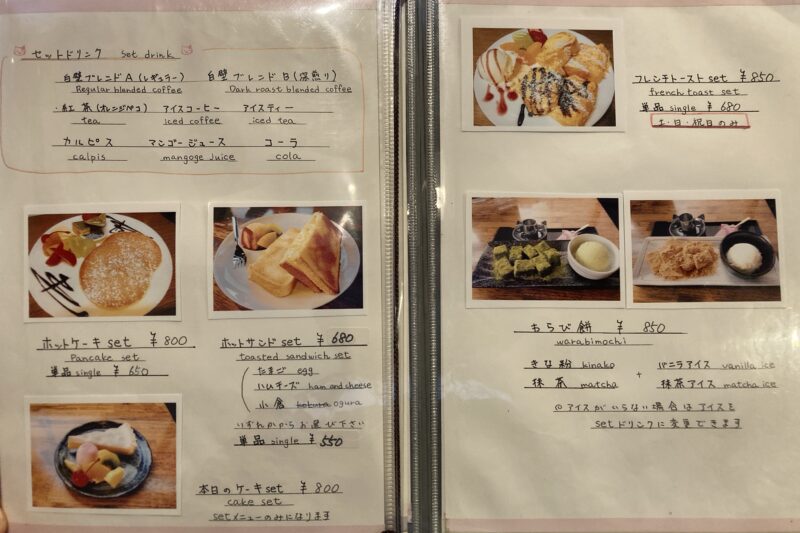 セットドリンク set drink
白壁ブレンドA(レギュラー) 白壁ブレンドB(深煎り)
Regular blended coffee Dark roast blended coffee
・紅茶(オレンジペコ) アイスコーヒー アイスティー
tea iced coffee iced tea
カルピス マンゴージュース コーラ
calpis mangoge juice cola
ホットケーキ set ¥800
Pancake set
単品 single ¥650
ホットサンド set ¥680
toasted sandwich set
たまご egg
ハムチーズ ham and cheese
小倉 kokura ogura
いずれかからお選び下さい
単品 single ¥550
本日のケーキ set ¥800
cake set
setメニューのみになります
フレンチトースト set ¥850
french toast set
単品 single ¥680
土・日・祝日のみ
わらび餅 ¥850
warabimochi
きな粉 kinako + バニラアイス vanilla ice
抹茶 matcha 抹茶アイス matcha ice
@アイスがいらない場合はアイスを
setドリンクに変更できます